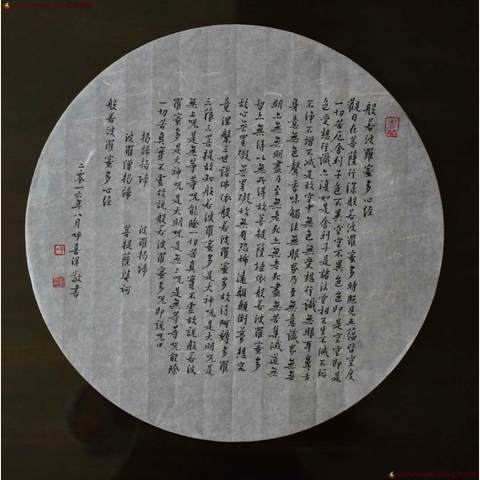 般若波羅蜜多心經
觀自在菩薩行深般若波羅蜜多時照見五蘊皆空度
一切苦厄舍利子色不異空空不異色色即是空空即是
色受想行識亦復如是舍利子是諸法空相不生不滅不垢
不淨不增不減是故空中無色無受想行識無眼耳鼻舌
身意無色聲香味觸法無眼界乃至無意識界無無
明亦無無明盡乃至無老死亦無老死盡無苦集滅道無
智亦無得以無所得故菩提薩埵依般若波羅蜜多
故心無罣礙無罣礙故無有恐怖遠離顛倒夢想究
竟涅槃三世諸佛依般若波羅蜜多故得阿耨多羅
三藐三菩提故知般若波羅蜜多是大神咒是大明咒是
無上咒是無等等咒能除一切苦真實不虛故說般若波
羅蜜多是大神咒是大明咒是無上咒是無等等咒能除
一切苦真實不虛故說般若波羅蜜多咒即說咒曰
揭諦揭諦 波羅揭諦
波羅僧揭諦 菩提薩婆訶
般若波羅蜜多心經
二零一三年八月
敬書